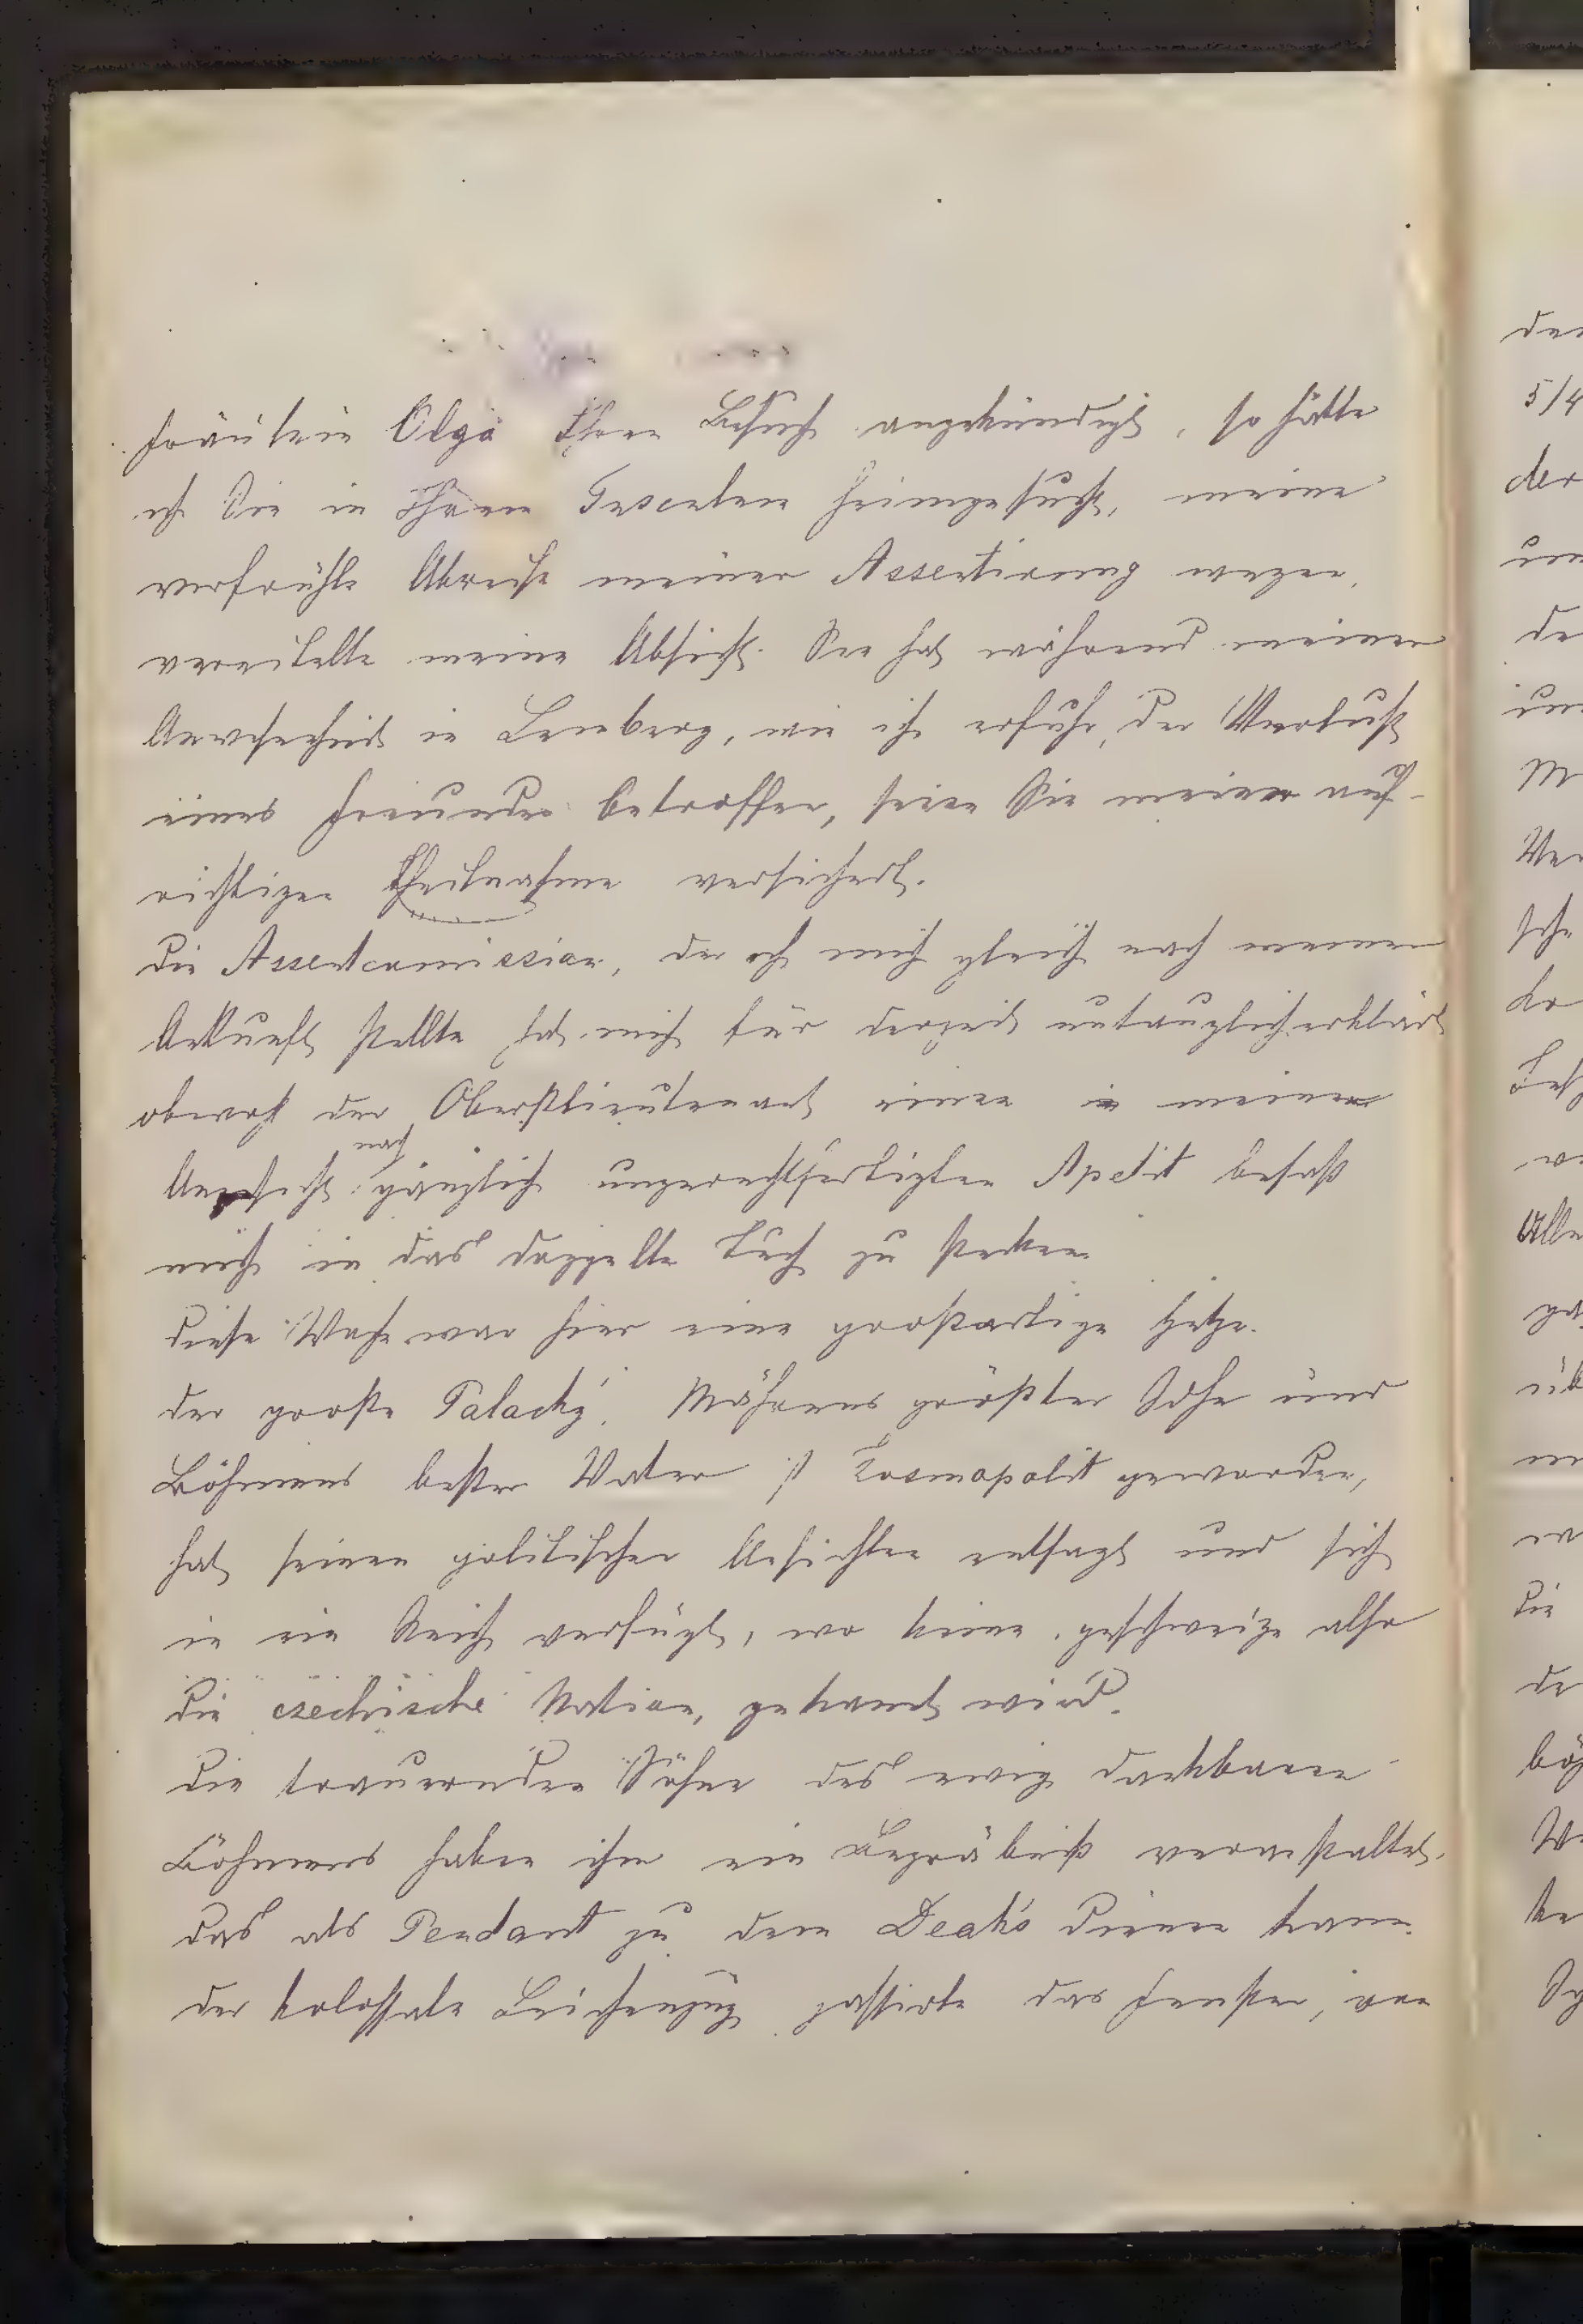 Fräulein Olga Ihren Besuch angekündigt, so hätte
ich Sie in Ihrem Tusculum heimgesucht, meine
verfrühte Abreise meiner Assentirung wegen,
vereitelte meine Absicht. Sie hat während meiner
Anwesenheit in Lemberg, wie ich erfuhr, der Verlust
eines Freundes betroffen, seien Sie meiner auf-
richtigen Theilnahme versichert.
Die Assentcomission, der ich mich gleich nach meiner
Ankunft stellte hat mich für derzeit untauglich erklärt
obwohl der Oberstlieutenant einen in meiner
Ansicht nach gänzlich ungerechtfertigten Apetit besaß
mich in das doppelte Tuch zu stecken.
Diese Woche war hier eine großartige Hetze.
Der große Palacký, Mährens größter Sohn und
Böhmens bester Vater ist Kosmopolit geworden,
hat seinen politischen Ansichten entsagt und sich
in ein Reich verfügt, wo keine, geschweige also
die czechische Nation, gekannt wird.
Die trauernden Söhne des ewig dankbaren
Böhmens haben ihm ein Begräbniß veranstaltet,
das als Pendant zu dem Deak's dienen kann.
Der kolossale Leichenzug passirte das Fenster, von